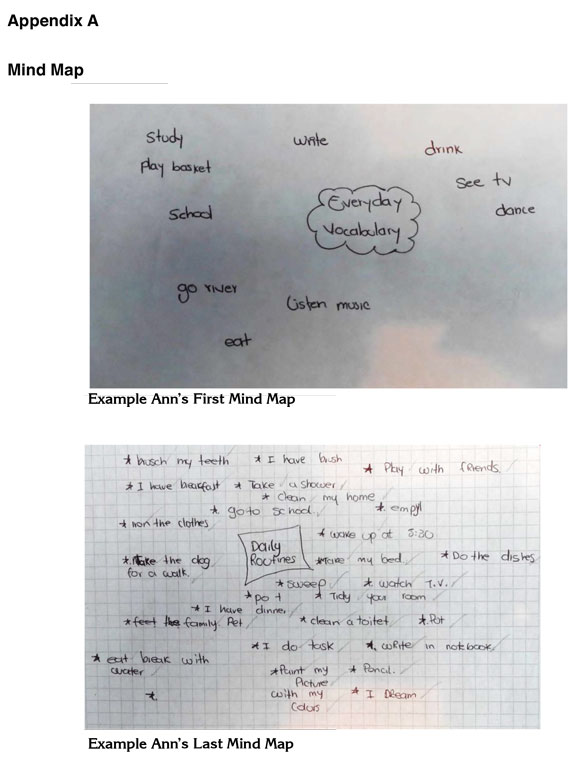 Appendix A
Mind Map
Study
write
drink
Play basket
See tv
dance
School
Everyday
Vocabulary
go river
Listen music
eat
Example Ann's First Mind Map
* busch my teeth * I have * Play with friends.
* I have beakfast * Take a shower
* clean my home
* go to school * empyl
* iron the clothes
* wake up at 5:30
Daily
Routines
* Take the dog
for a walk
* Make my bed * Do the dishes
* sweep * watch T.V.
* po t * Tidy your room
* I have dinner
* feet the family Pet * clean a toitet * Pot
* I do task * write in notebook
* eat break with
water
* Paint my
Picture
with my
Colors
* Pencil.
* I Dream
*
Example Ann's Last Mind Map